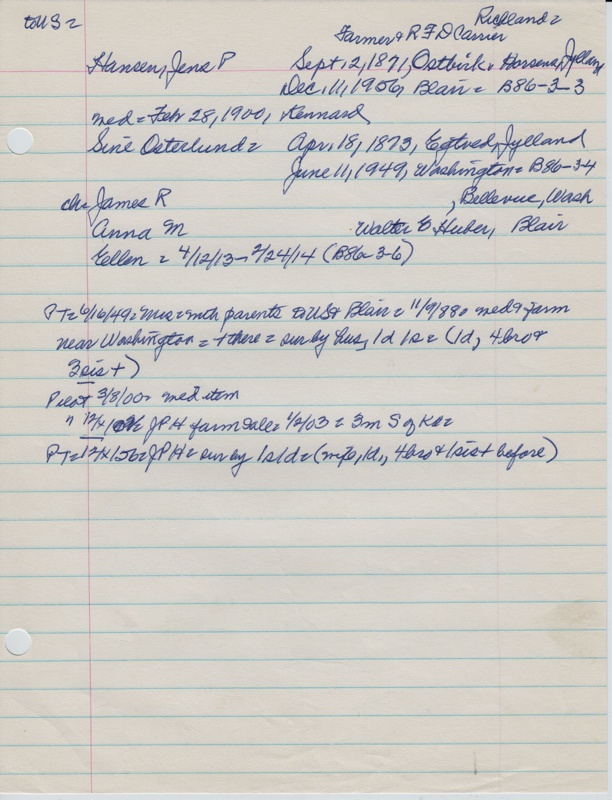 to US =
Richland =
Farmer & R F D Carrier
Hansen, Jens P Sept. 2, 1871, Ostbirk v Horsens, Jylland
Dec. 11, 1956, Blair = B86-3-3
med = Febr 28, 1900, Kennard
Sine Osterlund = Apr. 18, 1873, Egtved, Jylland
June 11, 1949, Washington = B86-3-4
ch = James R , Bellevue, Wash
Anna M Walter E Huber, Blair
Ellen = 4/12/13 - 2/24/14 (B86-3-6)
PT = 6/16/49 = Mrs = with parents to US & Blair = 11/9/880 med & farm
near Washington = + there = sur by hus, 1d 1s = (1d, 4bro &
3sis +)
Pilot 3/8/00 = med item
" JPH farm sale = 1/2/03 = 3m S of Ka =
PT = JPH = sur by 1s 1d = (wife, 1d, 4bro & 1sis + before)